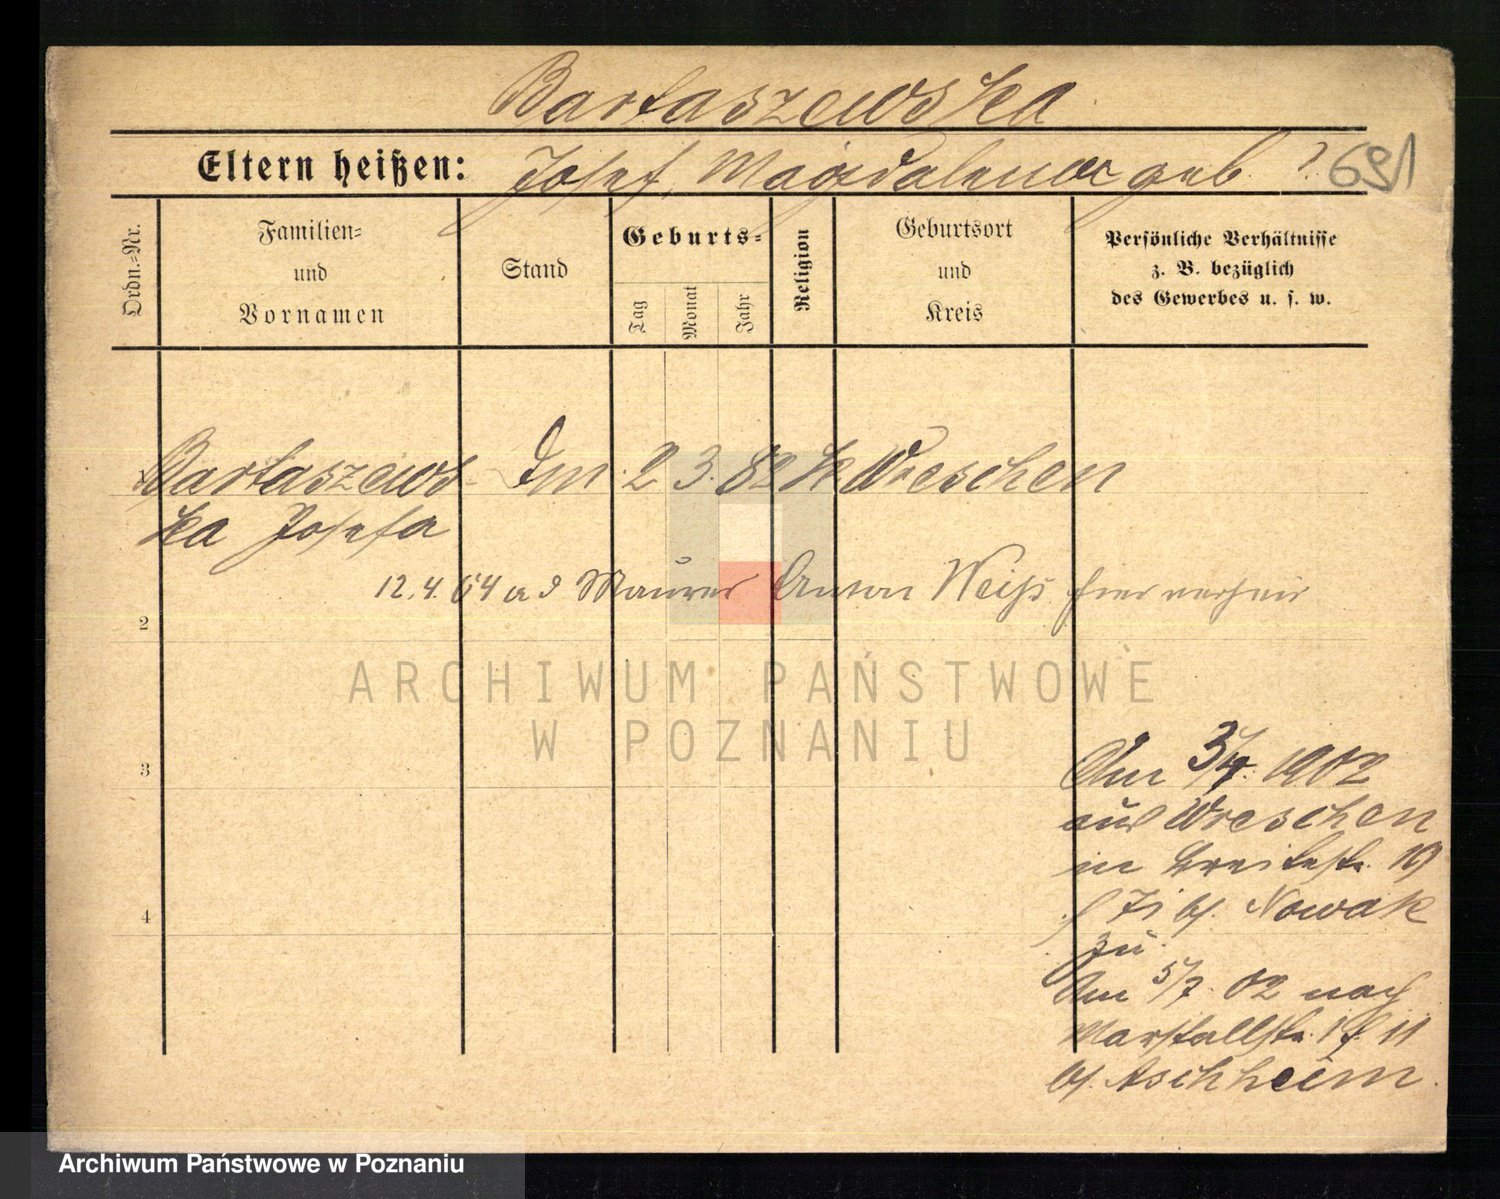 Bartaszewska
Eltern heißen: Josef, Magdalena geb. ?
691
Ordn.-Nr.
Familien-
und
Vornamen
Stand
Geburts-
Tag
Monat
Jahr
Religion
Geburtsort
und
Kreis
Persönliche Verhältnisse
z. B. bezüglich
des Gewerbes u. s. w.
Bartaszews- Dm 2 3. 82 k Wreschen
ka Josefa
12. 4. 04 a d Maurer Anton Weiß hier verheir
2
ARCHIWUM PAŃSTWOWE
W POZNANIU
3
Am 3/4. 1902
aus Wreschen
in Breitestr. 19
b/. Nowak
zu.
Am 5/7. 02 nach
Marstallstr. II
b/. Aschheim.
4
Archiwum Państwowe w Poznaniu